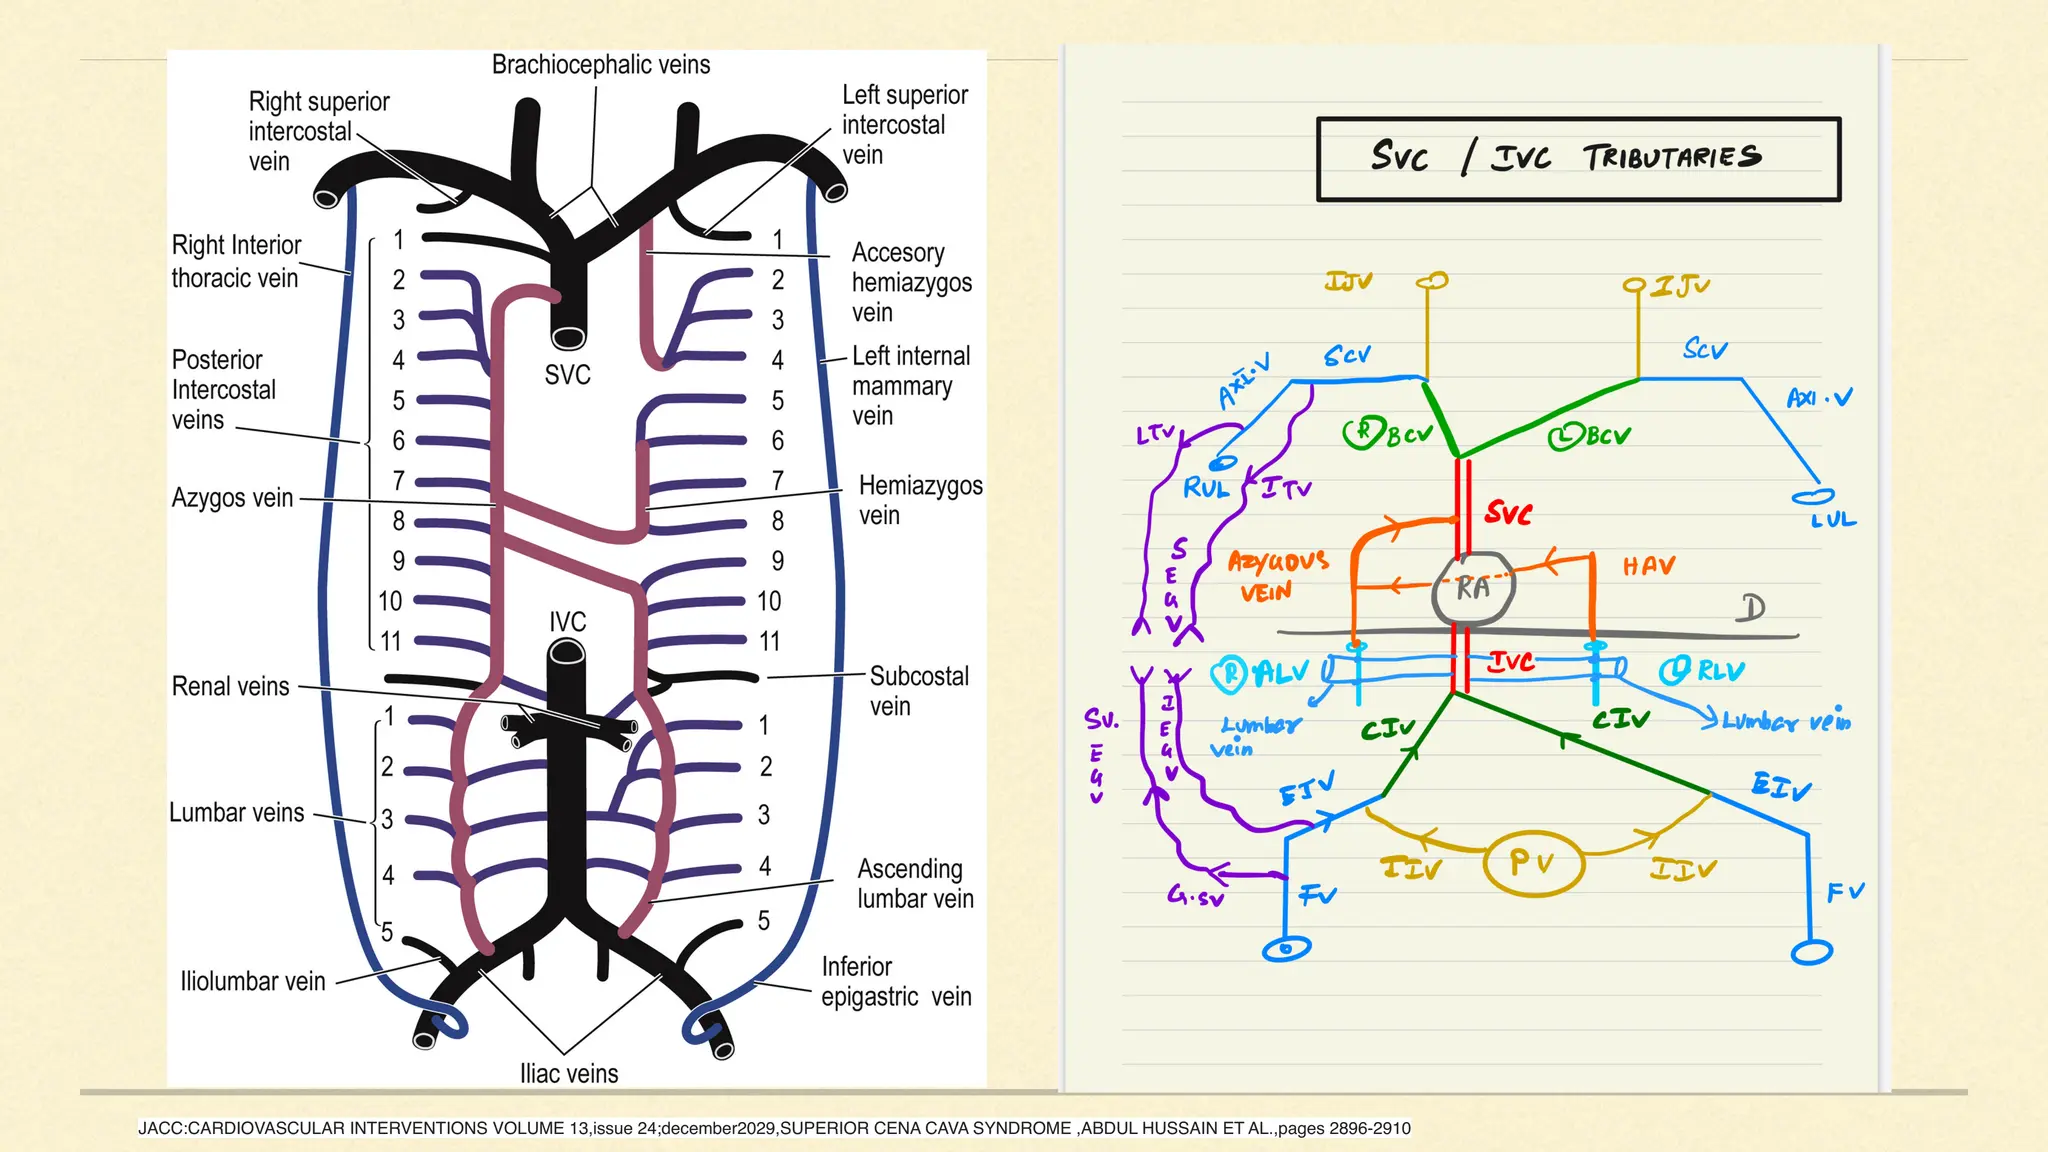 Brachiocephalic veins
Right superior
intercostal
vein
Left superior
intercostal
vein
Right Interior
thoracic vein
1
2
3
4
5
6
7
8
9
10
11
Posterior
Intercostal
veins
Azygos vein
SVC
1
2
3
4
5
6
7
8
9
10
11
Accesory
hemiazygos
vein
Left internal
mammary
vein
Hemiazygos
vein
IVC
Renal veins
Subcostal
vein
1
2
3
4
5
Lumbar veins
1
2
3
4
5
Ascending
lumbar vein
Iliolumbar vein
Inferior
epigastric vein
Iliac veins
SVC / IVC TRIBUTARIES
IJV
IJV
SCV
SCV
AXI.V
AXI.V
LTV
R BCV
L BCV
RUL
ITV
SVC
LUL
SEGV
AZYGOUS
VEIN
RA
HAV
D
R ALV
IVC
L RLV
Lumbar
vein
CIV
CIV
Lumbar vein
SV.
EGV
IEGV
EIV
EIV
IIV
PV
IIV
G.SV
FV
FV
JACC:CARDIOVASCULAR INTERVENTIONS VOLUME 13,issue 24;december2029,SUPERIOR CENA CAVA SYNDROME ,ABDUL HUSSAIN ET AL.,pages 2896-2910